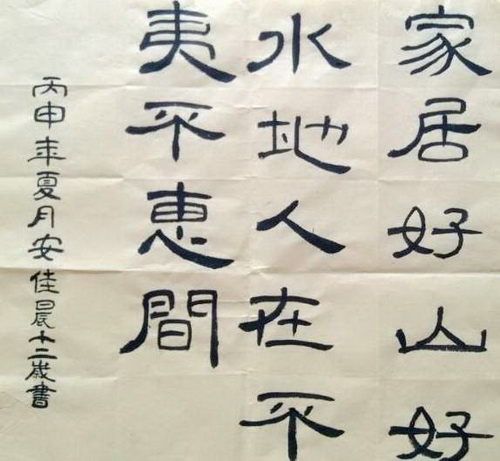 家居好山好
水地人在不
夷不惠間
丙申年夏月安佳晨十二歲書